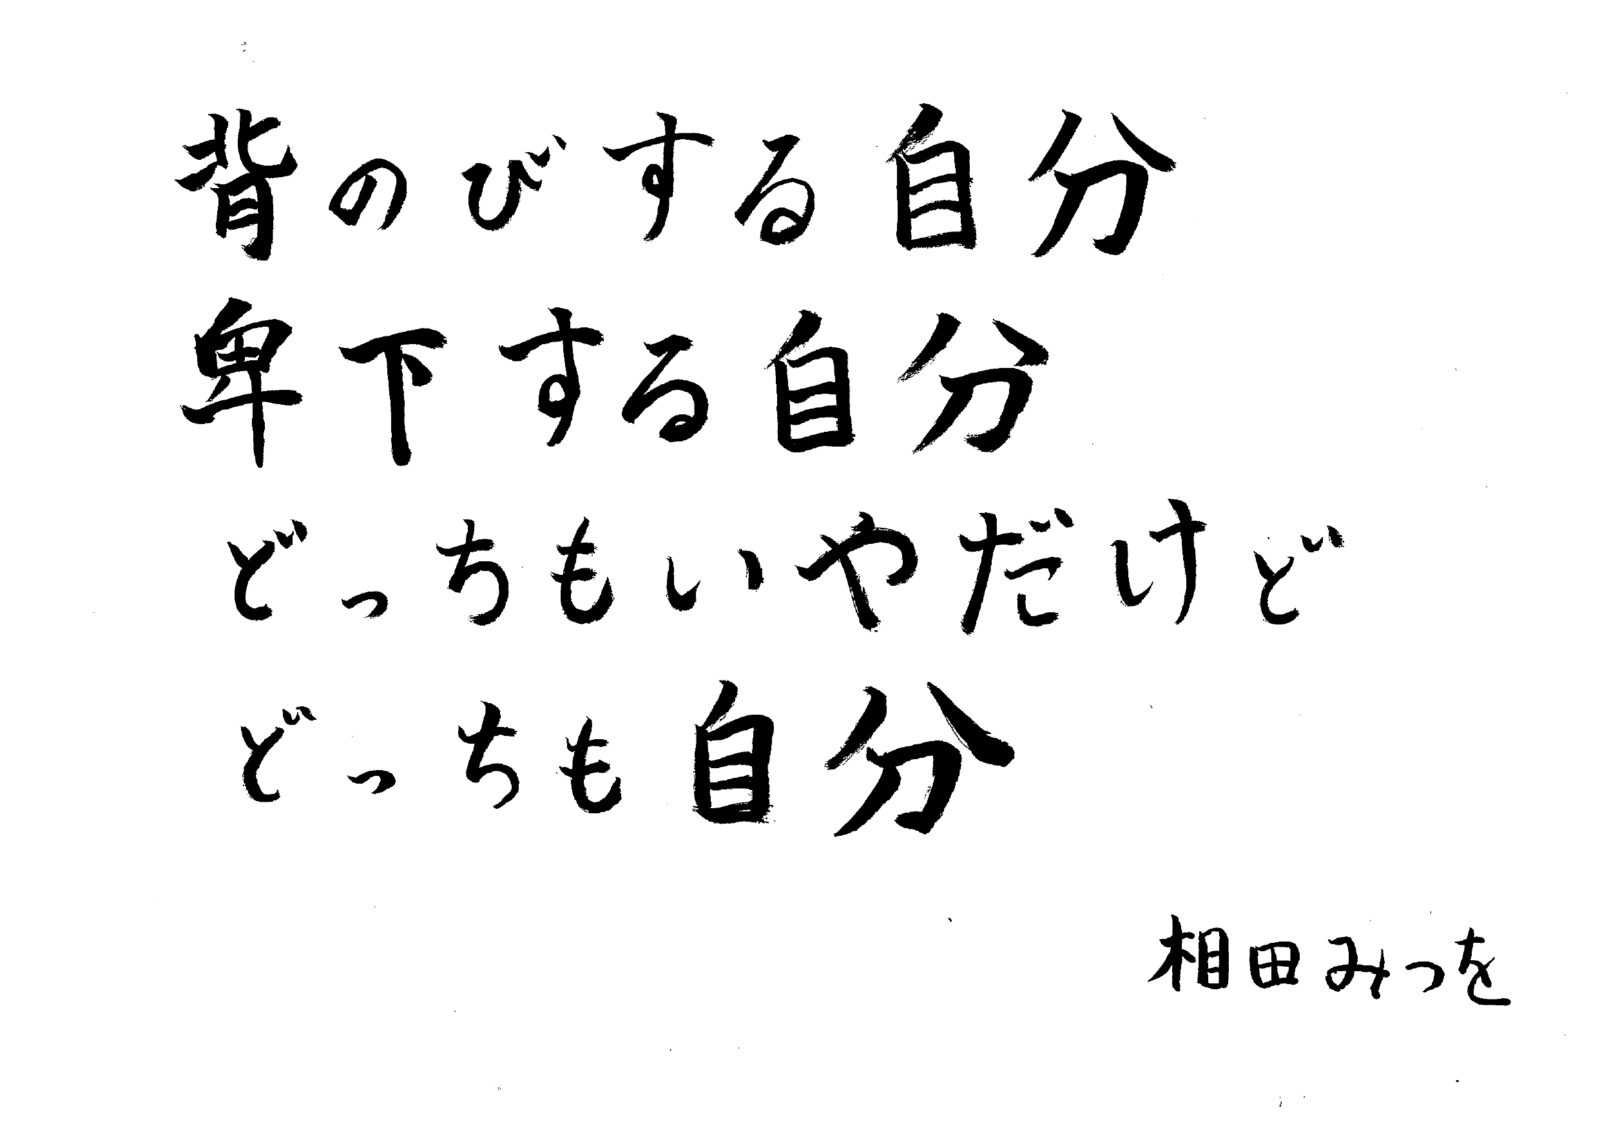 背のびする自分
卑下する自分
どっちもいやだけど
どっちも自分
相田みつを